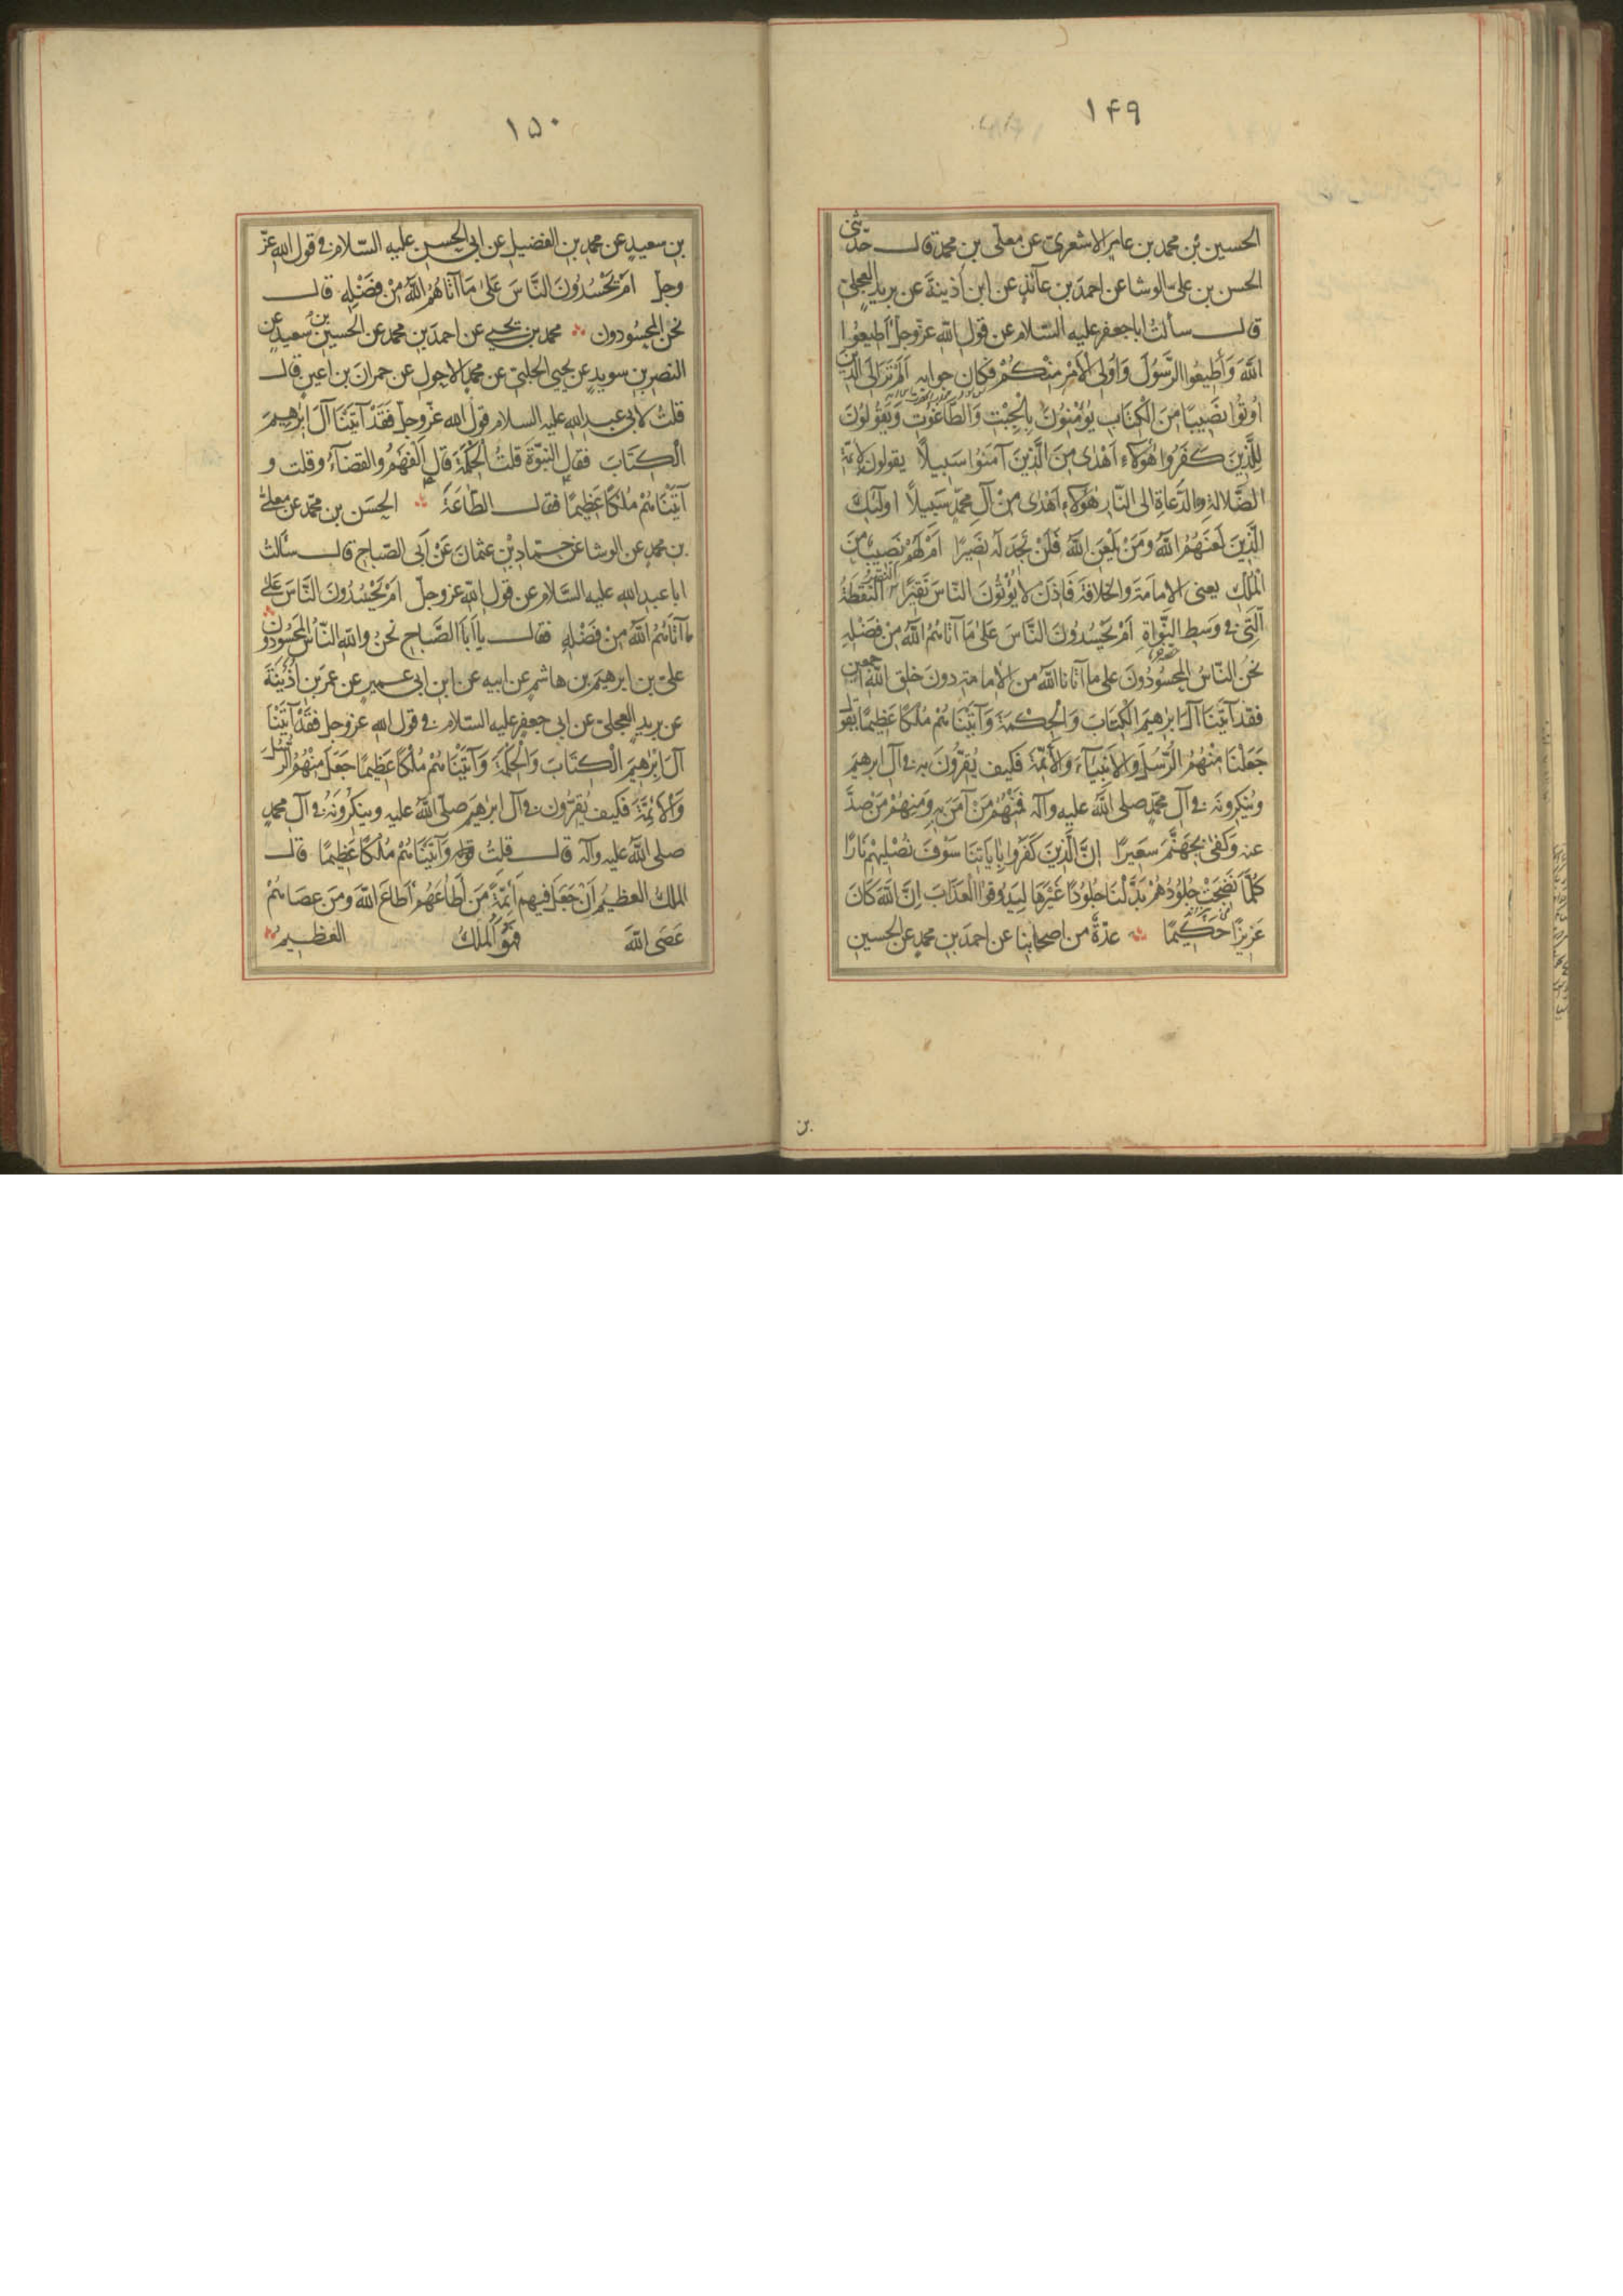 ۱۴۹
الحسین بن محمد بن عامر الاشعری عن معلی بن محمد قال حدثنی
الحسن بن علی الوشا عن احمد بن عائذ عن ابن اذینة عن برید العجلی
قال سألت اباجعفر علیه السلام عن قول الله عزوجل أطیعوا
الله وَأَطیعوا الرَّسُولَ وَأولی الأَمْرِ مِنْكُمْ فكان جوابه أَلَمْ تَرَ الَی الَّذین
أوتُوا نَصیبًا مِنَ الْكِتَابِ یُؤْمِنُونَ بِالْجِبْتِ وَالطَّاغُوتِ وَیَقُولُونَ
لِلَّذِینَ كَفَرُوا هٰؤلاء اَهْدٰی مِنَ الَّذینَ آمَنُوا سَبیلاً یقولون لائمّة
الضّلالة والدّعاة الی النّار هٰؤلاء اَهْدٰی مِنْ آلِ محمّدٍ سَبیلاً اولٰئِكَ
الَّذِینَ لَعَنَهُمُ اللهُ وَمَنْ یَلْعَنِ اللهُ فَلَنْ تَجِدَ لَهُ نَصیرًا اَمْ لَهُمْ نَصیبٌ مِنَ
الْمُلْكِ یعنی الامامة والخلافة فَاِذَنْ لا یُؤْتُونَ النّاسَ نَقیرًا النقیر النّقطة
الّتی فی وسط النّواة اَمْ یَحْسُدُونَ النَّاسَ عَلٰی مَا آتَاهُمُ اللهُ مِنْ فَضْلِهِ
نحن النّاسُ المحسُودُونَ علی ما آتانا الله من الامامة دونَ خلق الله اجمعین
فَقَد آتَیْنَا آلَ اِبْرٰهیمَ الْكِتَابَ وَالْحِكْمَةَ وَآتَیْنَاهُمْ مُلْكًا عَظیمًا یقول
جَعَلْنَا مِنْهُمُ الرُّسُلَ وَالاَنْبِیَآءَ وَالاَئِمَّةَ فكیف یُقِرُّونَ به فی آل ابرهیم
وینكرونه فی آل محمّدٍ صلی الله علیه وآله فَمِنْهُمْ مَنْ آمَنَ بِهِ وَمِنْهُمْ مَنْ صَدَّ
عنه وَكَفٰی بِجَهَنَّمَ سَعیرًا اِنَّ الَّذِینَ كَفَرُوا بِآیَاتِنَا سَوْفَ نُصْلِیهِمْ نَارًا
كُلَّمَا نَضِجَتْ جُلُودُهُمْ بَدَّلْنَا جُلُودًا غَیْرَهَا لِیَذُوقُوا الْعَذَابَ اِنَّ اللهَ كَانَ
عَزیزًا حَكیمًا عدّةٌ من اصحابنا عن احمد بن محمد عن الحسین
بن
۱۵۰
بن سعیدٍ عن محمد بن الفضیل عن ابی الحسن علیه السّلام فی قول الله عزّ
وجلّ اَمْ یَحْسُدُونَ النَّاسَ عَلٰی مَا آتَاهُمُ اللهُ مِنْ فَضْلِهِ قال
نحن المحسُودون محمد بن یحیی عن احمد بن محمد عن الحسین بن سعیدٍ عن
النضر بن سویدٍ عن یحیی الحلبی عن محمد الاحول عن حمران بن اعین قال
قلت لابی عبد الله علیه السلام قول الله عزّوجلّ فَقَدْ آتَیْنَا آلَ اِبْرٰهیمَ
الْكِتَابَ فقال النبوّة قلتُ الْحِكْمَة قال الفَهْمُ والقضآءُ وقلت و
آتَیْنَاهُمْ مُلْكًا عَظیمًا فقال الطّاعَةَ الحسین بن محمّد عن معلی
بن محمدٍ عن الوشا عن حمّاد بن عثمان عَنْ اَبی الصّباح قال سألت
ابا عبد الله علیه السّلام عن قول الله عزوجلّ اَمْ یَحْسُدُونَ النَّاسَ عَلٰی
مَا آتَاهُمُ اللهُ مِنْ فَضْلِهِ فقال یا اَبَا الصَّباح نحن والله النّاسُ المحسُودون
علی بن ابرهیم بن هاشم عن ابیه عن ابن ابی عمیر عن عمر بن اُذَیْنَةَ
عن برید العجلی عن ابی جعفر علیه السّلام فی قول الله عزوجلّ فَقَدْ آتَیْنَا
آلَ اِبْرٰهیمَ الْكِتَابَ وَالْحِكْمَةَ وَآتَیْنَاهُمْ مُلْكًا عَظیمًا جَعَلَ مِنْهُمُ الرُّسُلَ
وَالاَئِمَّةَ فكیف یُقِرّون فی آل ابرٰهیم صلّی الله علیه وینكرُونَهُ فی آل محمدٍ
صلی الله علیه وآله قال قلتُ قوله وَآتَیْنَاهُمْ مُلْكًا عَظیمًا قال
الملك العظیم اَنْ جَعَلَ فیهم اَئِمَّةً مَنْ اَطَاعَهُمْ اَطَاعَ اللهَ وَمَنْ عصَاهُمْ
عَصَی اللهَ فَهُوَ الْمُلْكُ العَظیم